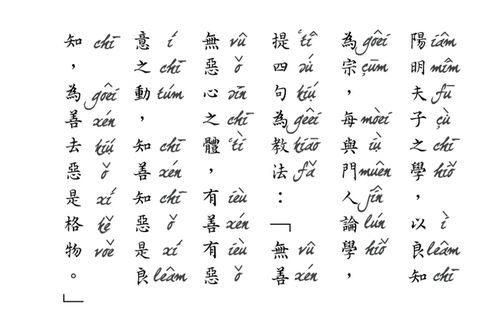 陽明夫子之學，以良知
iâm mîm fū çù chī hiǒ ì leâm chī
為宗，每與門人論學，
goêi çūm moèi iù muên jîn lún hiǒ
提四句為教法：「無善
ʻtî sú kiú goêi kiáo fǎ vû xén
無惡心之體，有善有惡
vû ǒ sīn chī ʻtì ièu xén ièu ǒ
意之動，知善知惡是良
í chī túm chī xén chī ǒ xí leâm
知，為善去惡是格物。」
chī goêi xén kiú ǒ xí kě voě